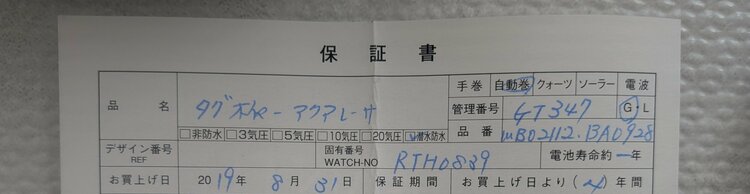 保証書
手巻 自動巻 クォーツ ソーラー 電波
品名 タグホイヤー アクアレーサー
管理番号 GT347 G・L
□非防水 □3気圧 □5気圧 □10気圧 □20気圧 ☑潜水防水
品番 WBD2112.BA0928
デザイン番号 REF
固有番号 WATCH-NO RTH0839
電池寿命約 ー 年
お買上げ日 2019年 8月 31日 保証期間 お買上げ日より( 2 )年間